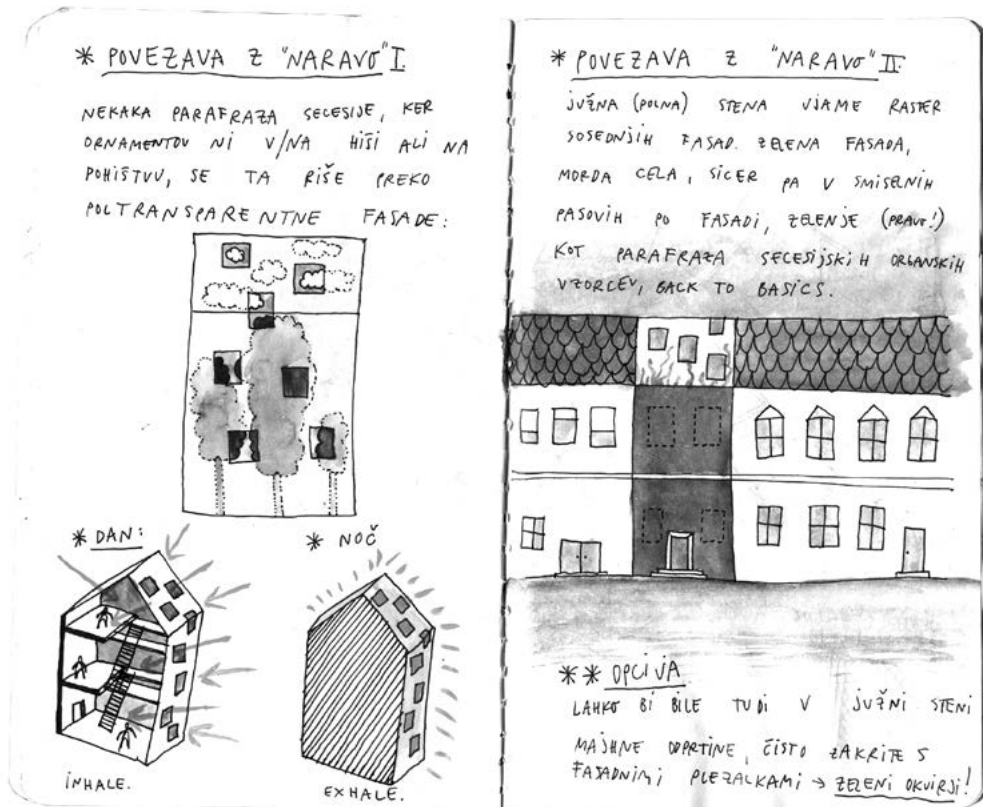 * POVEZAVA Z "NARAVO" I.
NEKAKA PARAFRAZA SECESIJE, KER
ORNAMENTOV NI V/NA HIŠI ALI NA
POHIŠTVU, SE TA RIŠE PREKO
POLTRANSPARENTNE FASADE:
* DAN:
* NOČ
INHALE.
EXHALE.
* POVEZAVA Z "NARAVO" II.
JUŽNA (POLNA) STENA UJAME RASTER
SOSEDNJIH FASAD. ZELENA FASADA,
MORDA CELA, SICER PA V SMISELNIH
PASOVIH PO FASADI, ZELENJE (PRAVO!)
KOT PARAFRAZA SECESIJSKIH ORGANSKIH
VZORCEV, BACK TO BASICS.
** OPCIJA
LAHKO BI BILE TUDI V JUŽNI STENI
MAJHNE ODPRTINE, ČISTO ZAKRITE S
FASADNIMI PLEZALKAMI → ZELENI OKVIRJI!